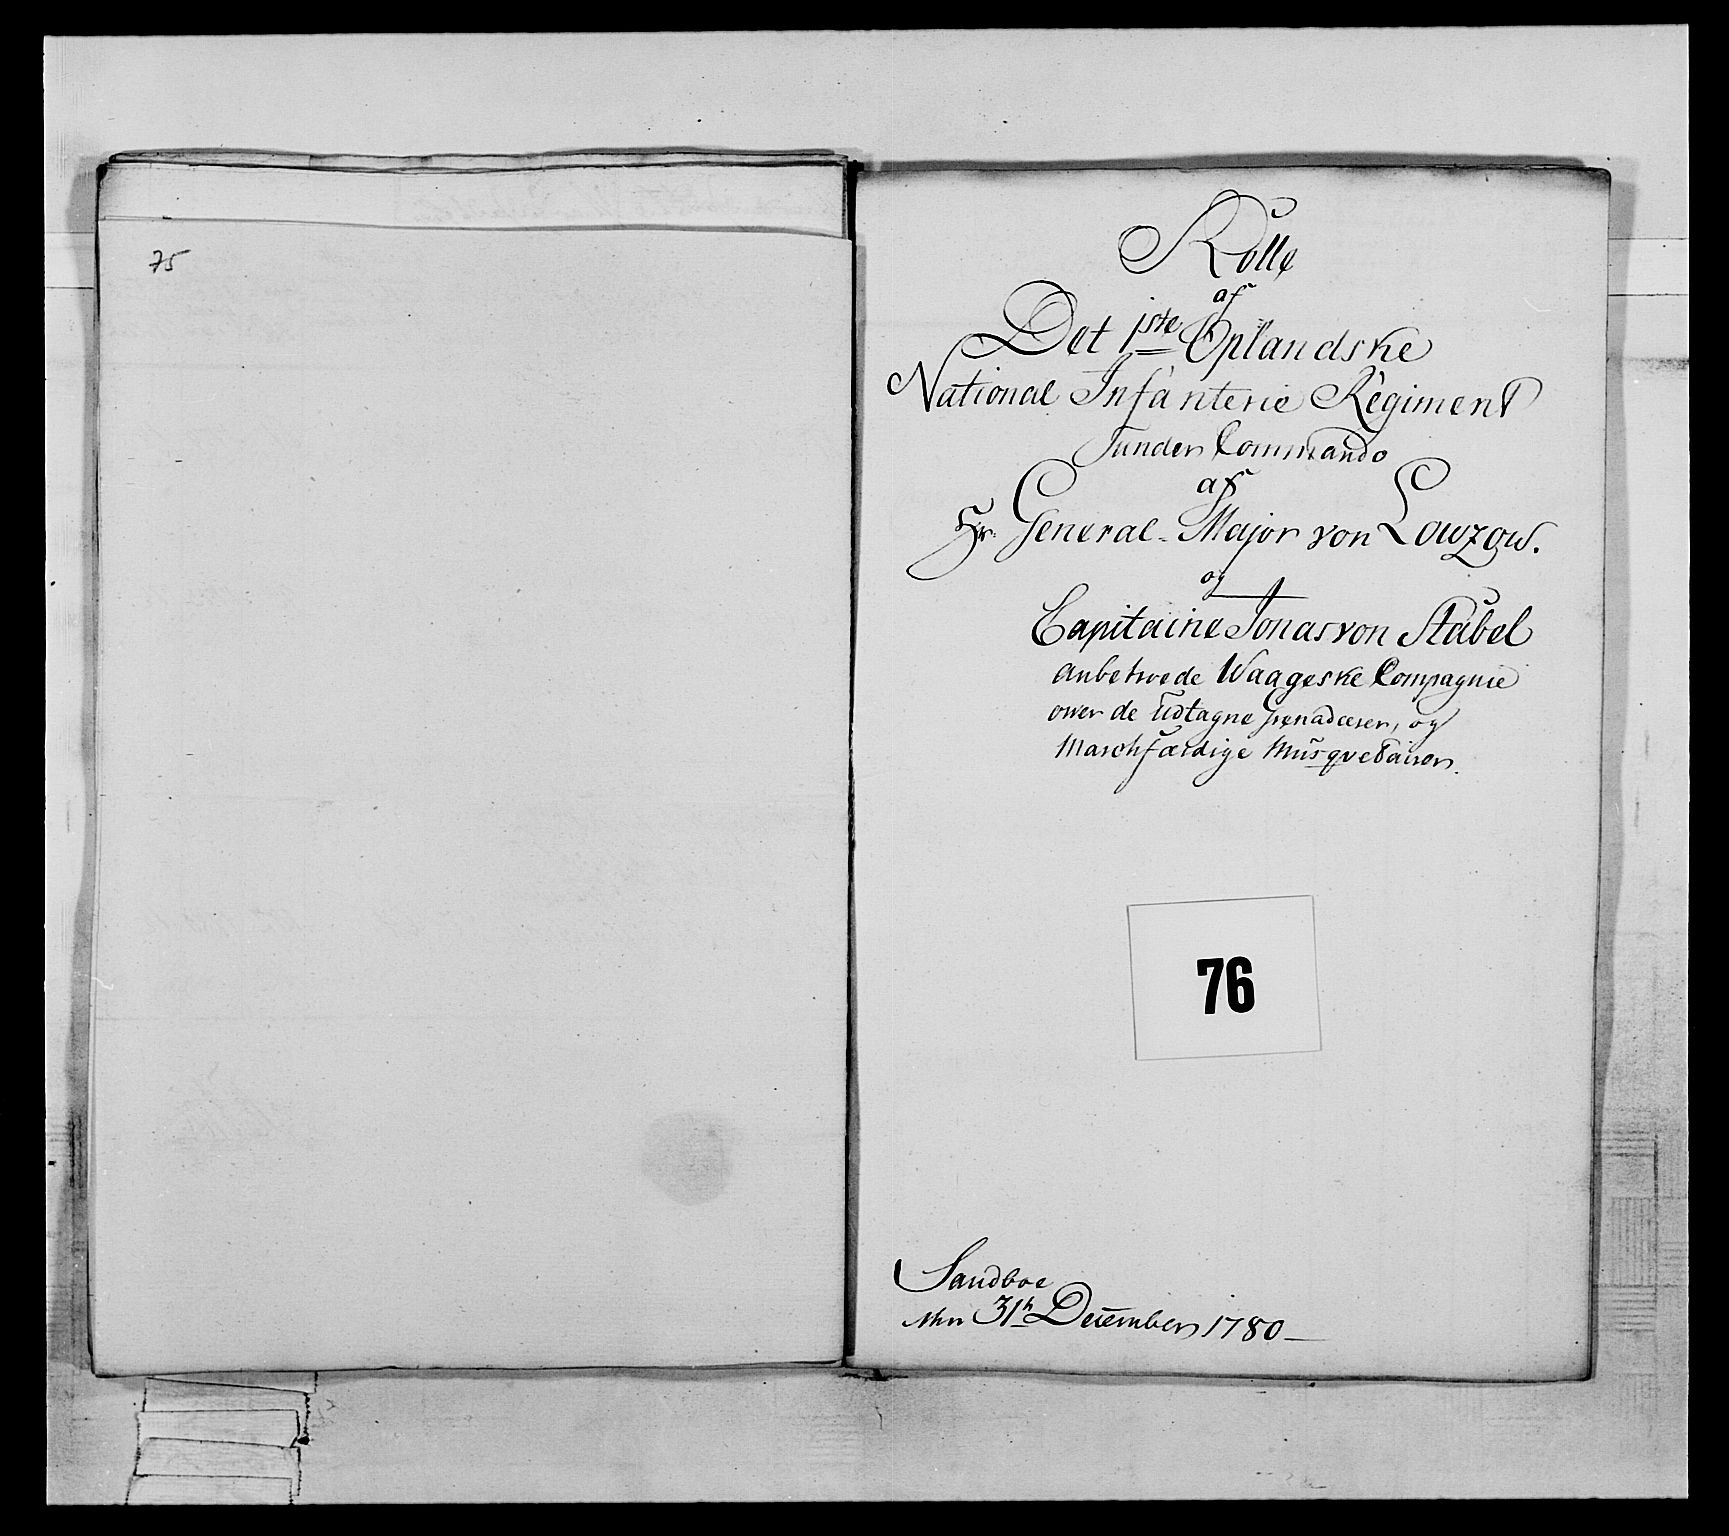 75
Rolle
af
Det 1ste Oplandske
National Infanterie Regiment
under Commando
af
Hr. General-Major von Lowzow.
og
Capitaine Jonas von Stabel
anbetroede Waageske Compagnie
over de Udtagne Grenaderer, og
Marchfærdige Musquetairer.
76
Sandboe
31te December 1780